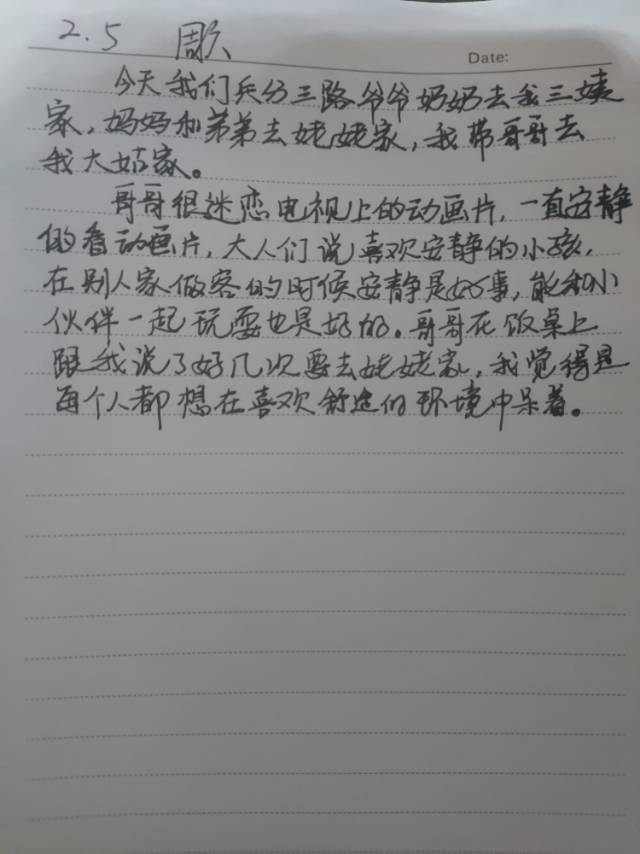 2.5 周六
Date:
今天我们兵分三路爷爷奶奶去我三姨
家,妈妈和弟弟去姥姥家,我带哥哥去
我大姑家。
哥哥很迷恋电视上的动画片,一直安静
的看动画片,大人们说喜欢安静的小孩,
在别人家做客的时候安静是好事,能和小
伙伴一起玩耍也是好的。哥哥在饭桌上
跟我说了好几次要去姥姥家,我觉得是
每个人都想在喜欢舒适的环境中呆着。